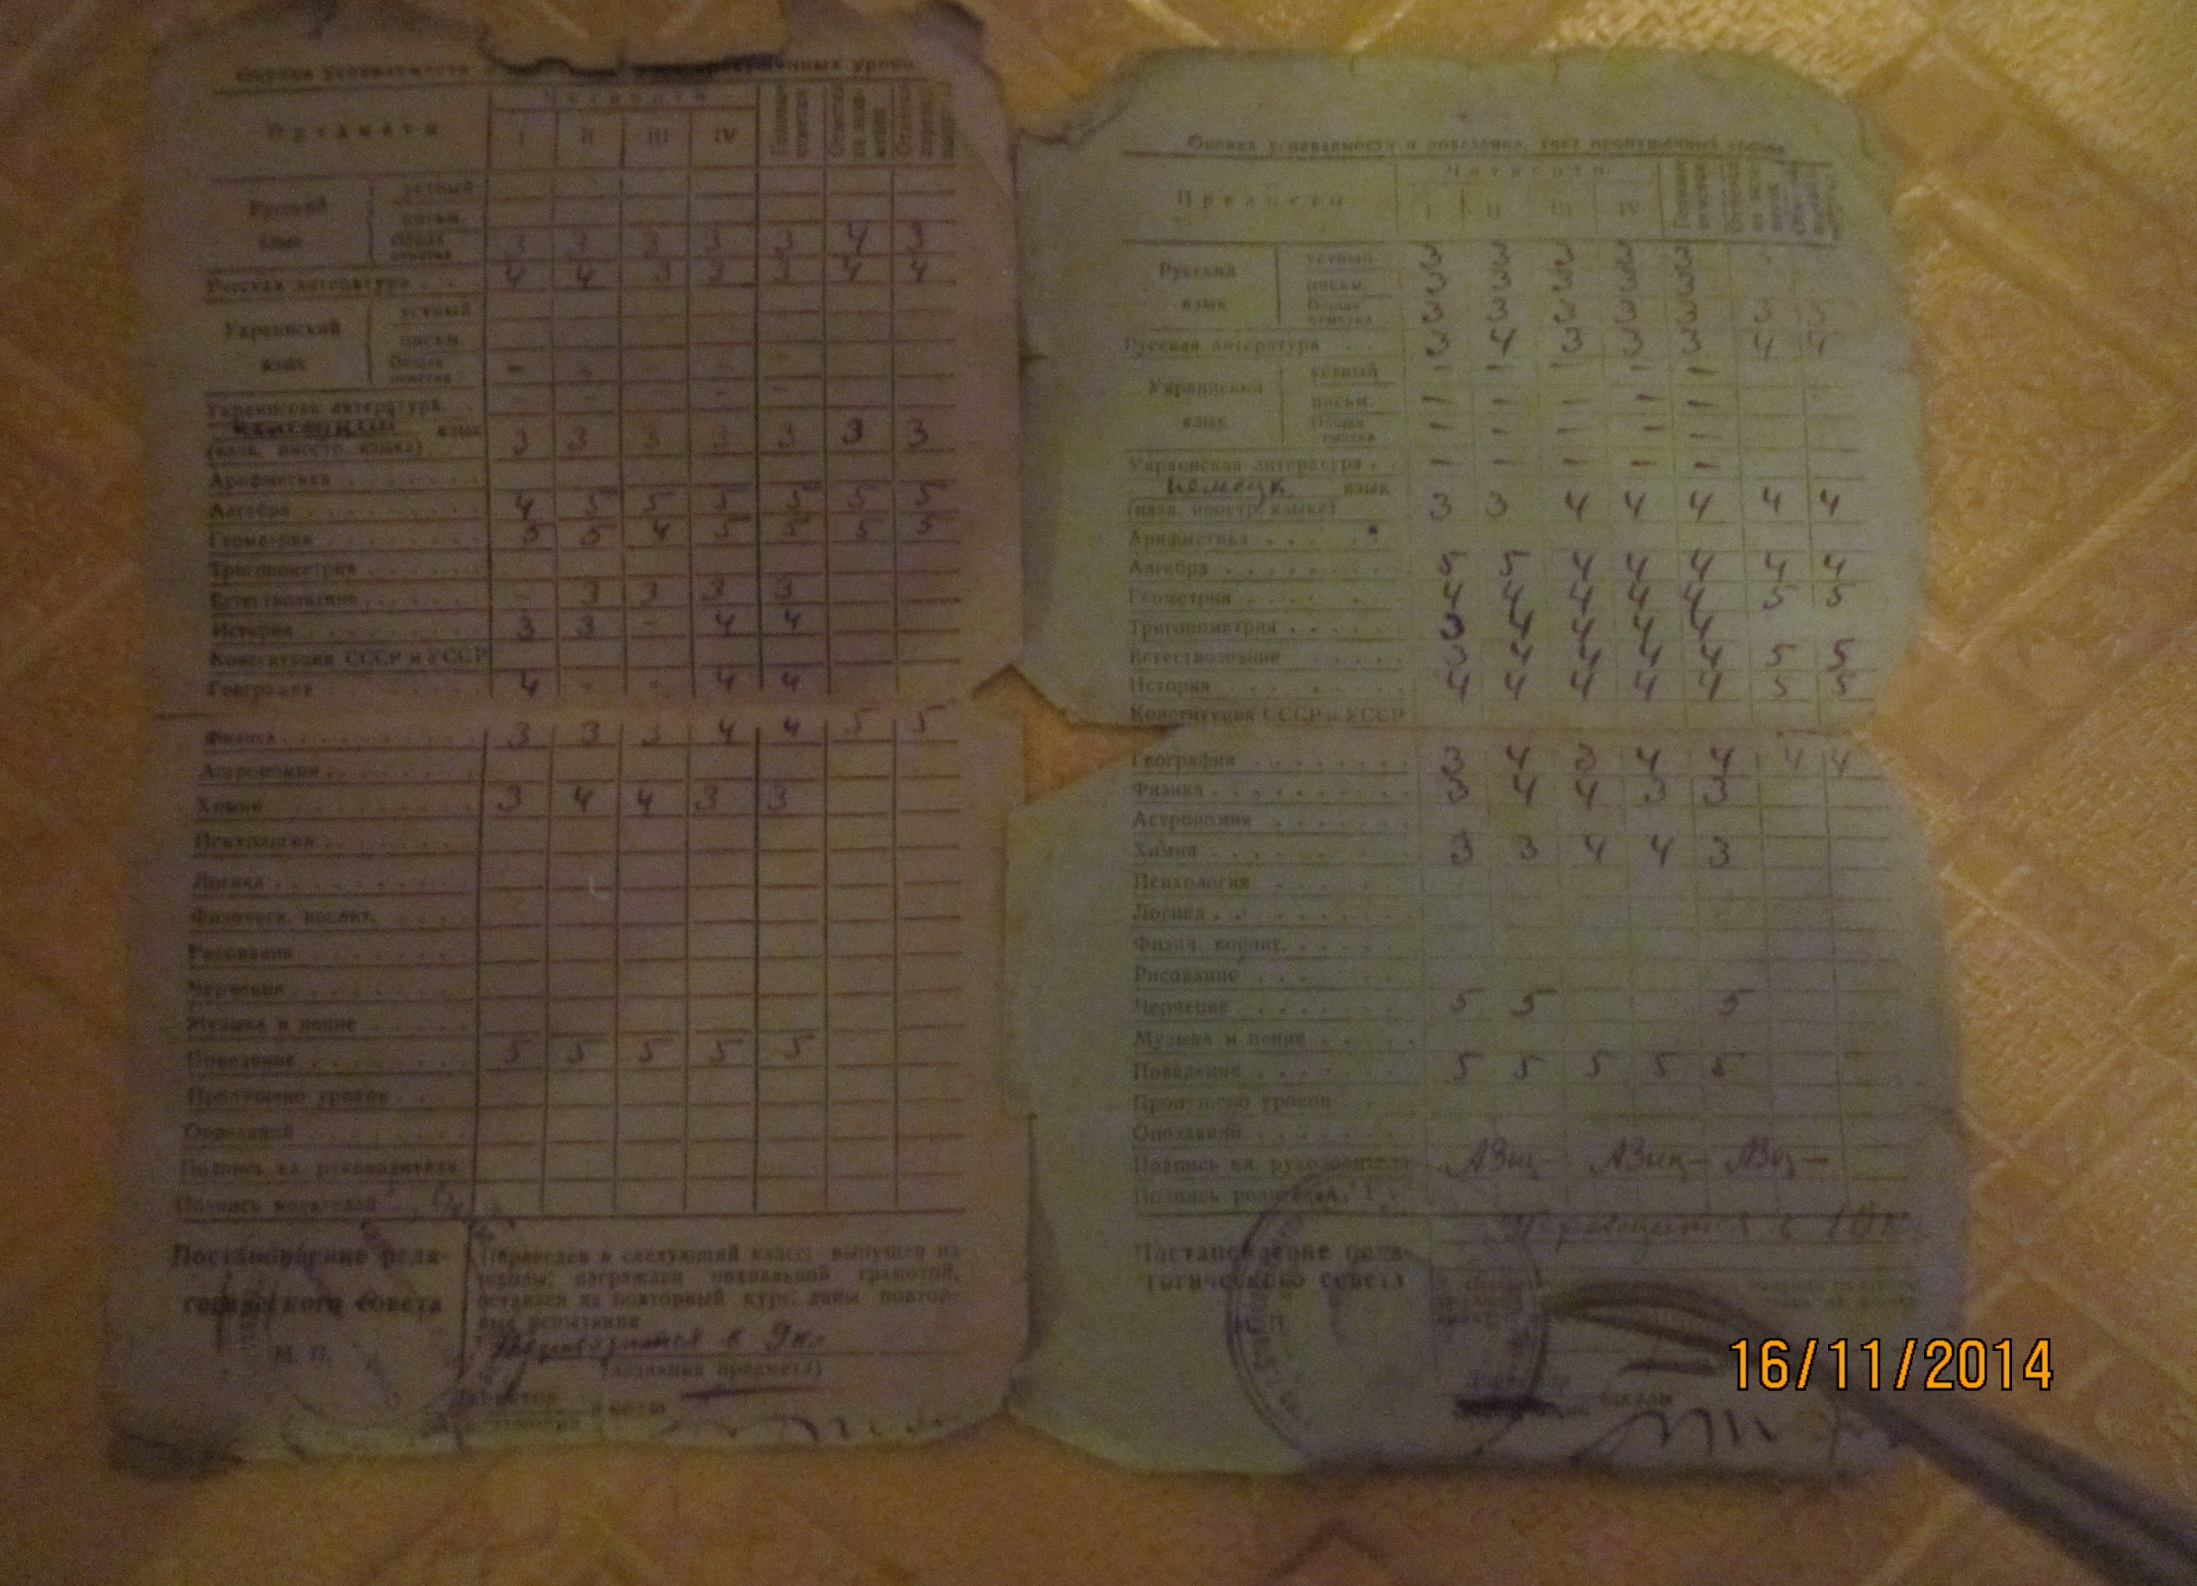 Оценка успеваемости пропущенных уроков
Предметы
Четверти
I II III IV
Русский язык
устный
письм.
Общая отметка 3 3 3 3 3 4 3
Русская литература 4 4 3 3 3 4 4
Украинский язык
устный
письм.
Общая отметка - - - - -
Украинская литература - - - - -
язык
(назв. иностр. языка) 3 3 3 3 3 3 3
Арифметика
Алгебра 4 5 5 5 5 5 5
Геометрия 5 5 4 5 5 5 5
Тригонометрия
Естествознание - 3 3 3 3
История 3 3 - 4 4
Конституция СССР и УССР
География 4 - - 4 4
Физика 3 3 3 4 4 5 5
Астрономия
Химия 3 4 4 3 3
Психология
Логика
Физическ. воспит.
Рисование
Черчение
Музыка и пение
Поведение 5 5 5 5 5
Пропущено уроков
Опозданий
Подпись кл. руководителя
Подпись родителей
Постановление педагогического совета
М. П.
Переведен в следующий класс; выпущен из
школы; награжден похвальной грамотой,
оставлен на повторный курс; даны повтор-
ные испытания
в 9 кл.
(название предмета)
Директор школы
Оценка успеваемости и поведения, учет пропущенных уроков
Предметы
Четверти
I II III IV
Русский язык
устный 3 3 3 3 3
письм. 3 3 3 3 3
Общая отметка 3 3 3 3 3 3 3
Русская литература 3 4 3 3 3 4 4
Украинский язык
устный - - - - -
письм. - - - - -
Общая отметка - - - - -
Украинская литература - - - - -
немецк язык
(назв. иностр. языка) 3 3 4 4 4 4 4
Арифметика
Алгебра 5 5 4 4 4 4 4
Геометрия 4 4 4 4 4 5 5
Тригонометрия 3 4 4 4 4
Естествознание 3 4 4 4 4 5 5
История 4 4 4 4 4 5 5
Конституция СССР и УССР
География 3 4 3 4 4 4 4
Физика 3 4 4 3 3
Астрономия
Химия 3 3 4 4 3
Психология
Логика
Физич. воспит.
Рисование
Черчение 5 5 5
Музыка и пение
Поведение 5 5 5 5 5
Пропущено уроков
Опозданий
Подпись кл. руководителя
Подпись родителей
Постановление педагогического совета
М. П.
Переводится в 10 кл
Директор
школы
16/11/2014